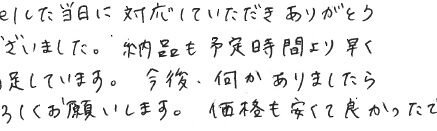 した当日に対応していただきありがとう
ざいました。納品も予定時間より早く
足しています。今後、何かありましたら
ろしくお願いします。価格も安くて良かったで